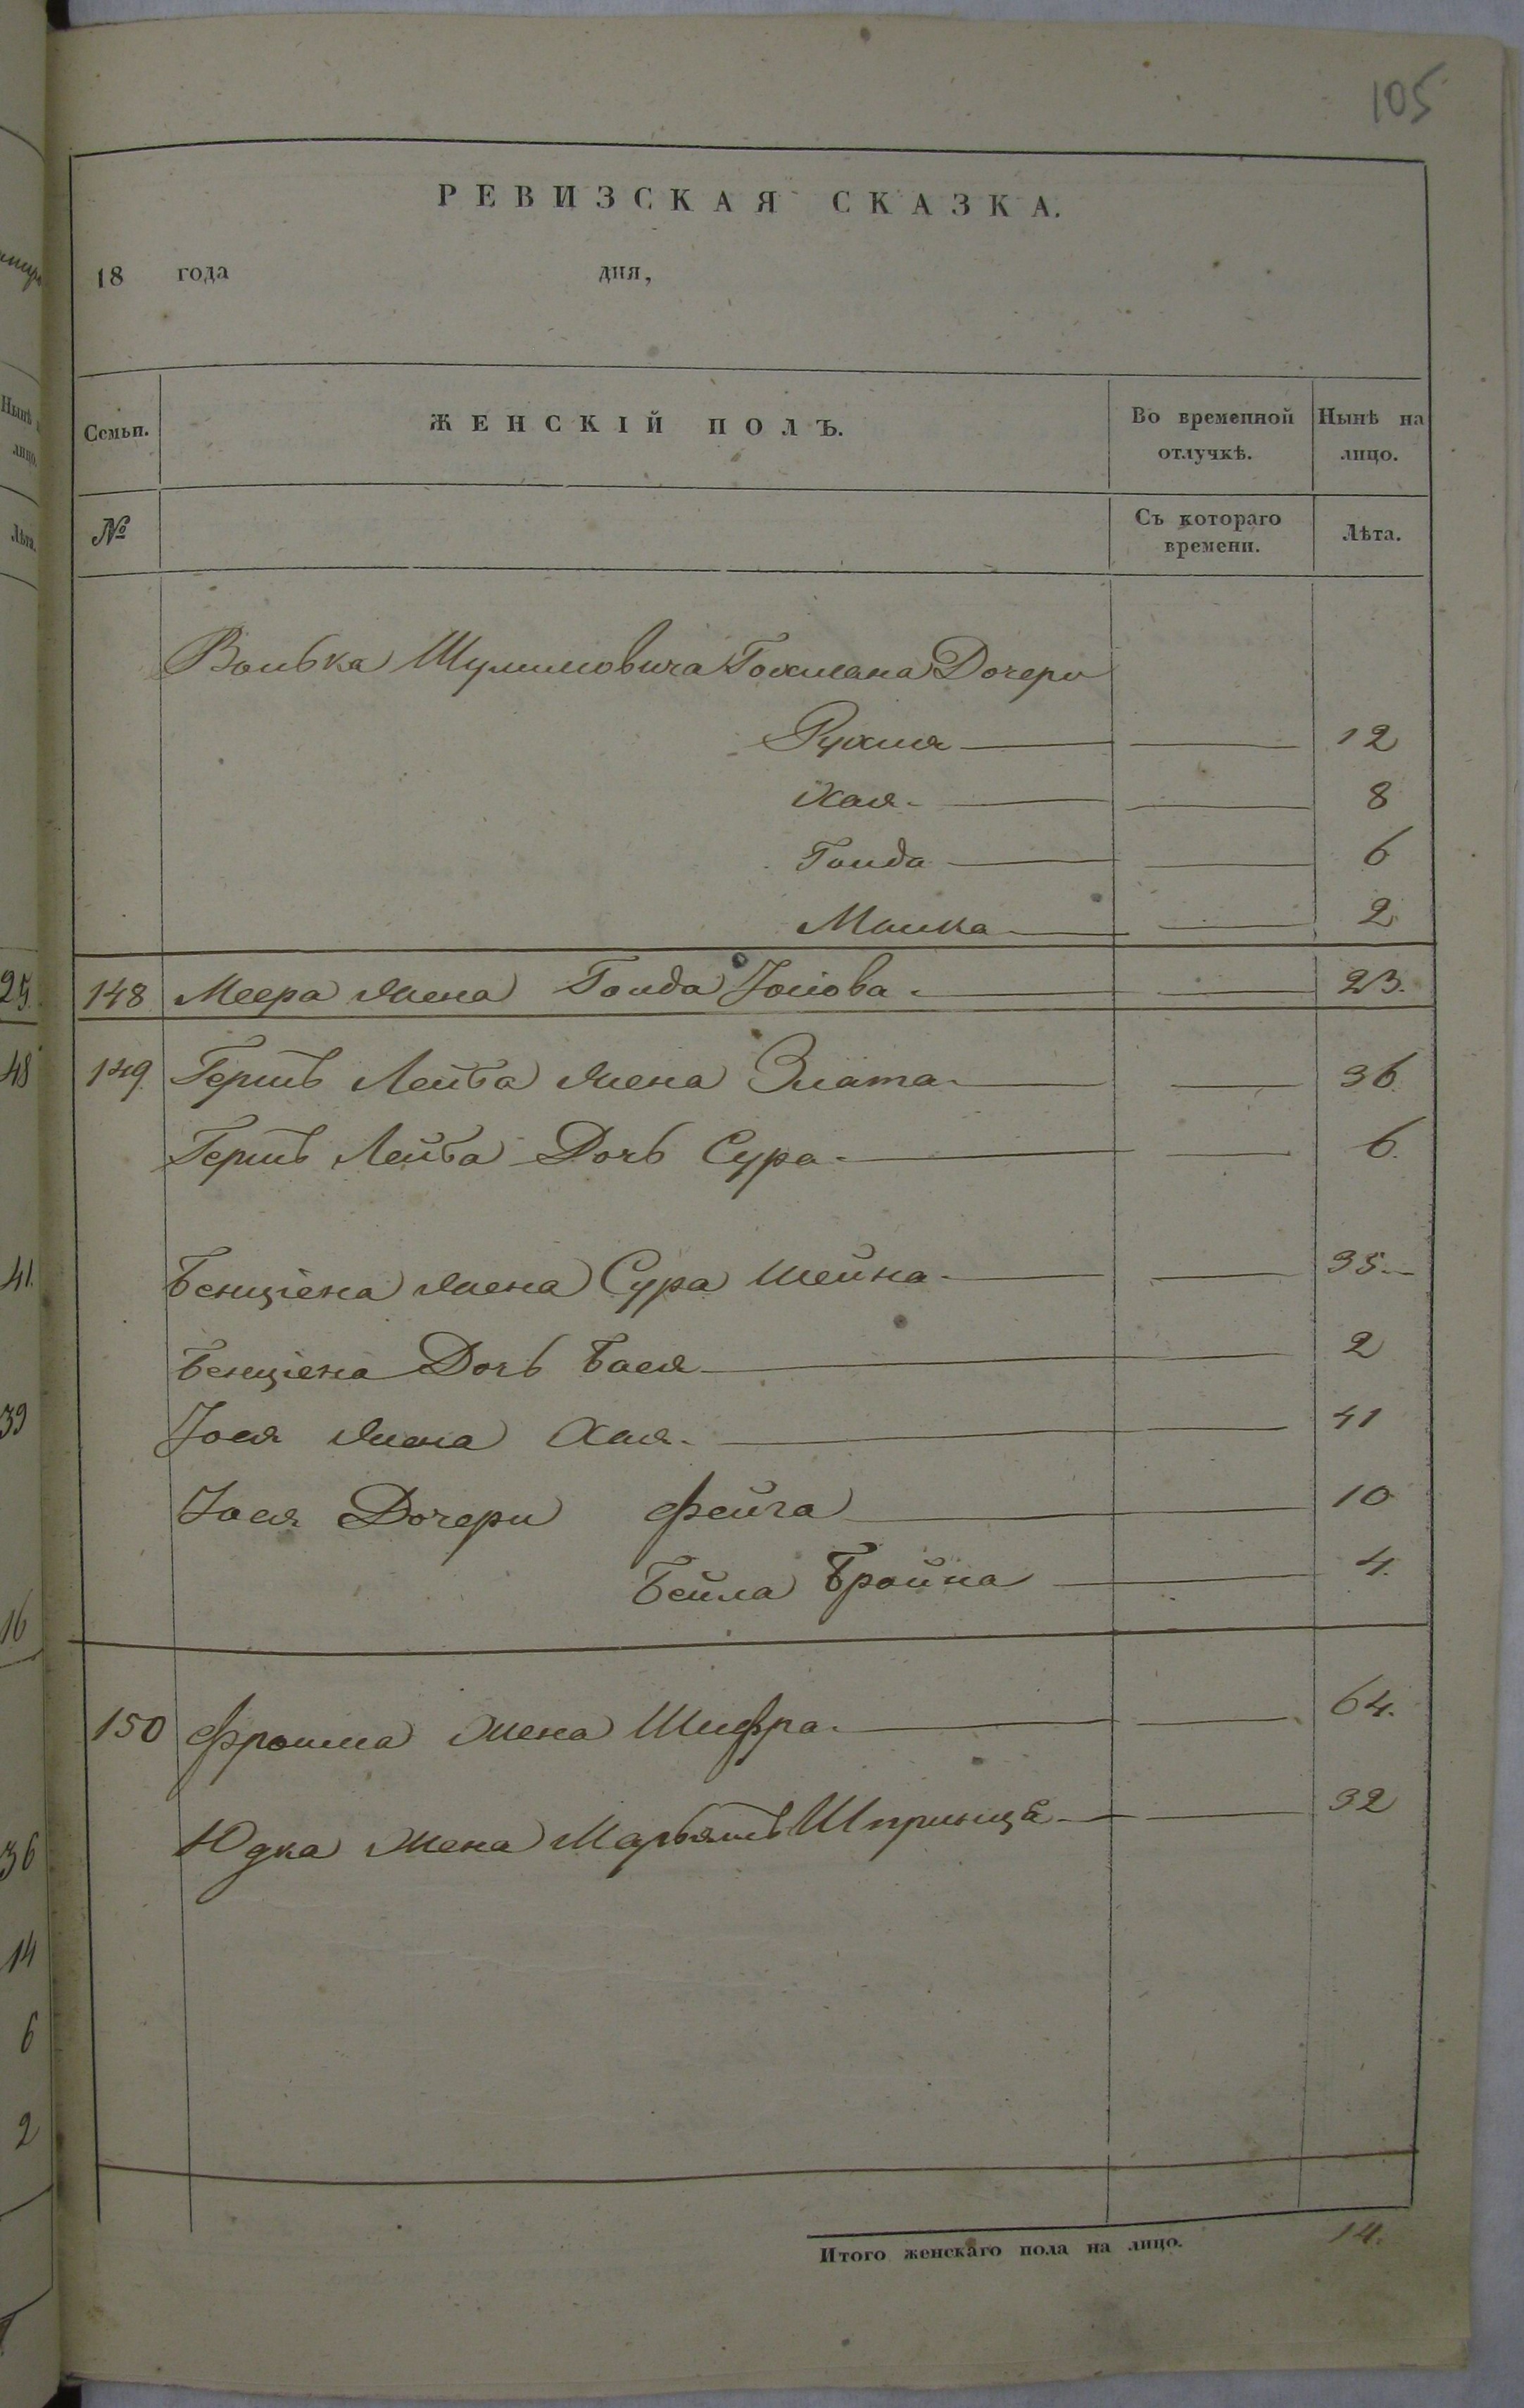 105
РЕВИЗСКАЯ СКАЗКА.
18 года дня,
Семьи. ЖЕНСКІЙ ПОЛЪ. Во временной отлучкѣ. Нынѣ на лицо.
№ Съ котораго времени. Лѣта.
Волька Шулимовича Гохмана Дочери
Рухля 12
Хая 8
Голда 6
Малка 2
148 Меера Жена Голда Іосіова 23.
149 Гершъ Лейба Жена Злата 36
Гершъ Лейба Дочь Сура 6.
Бенціена Жена Сура Шейна 35
Бенціена Дочь Бася 2
Іося Жена Хая 41
Іося Дочери Фейга 10
Бейла Бройна 4.
150 Фроима Жена Шифра 64.
Юдка Жена Марьямъ Шпринца 32
Итого женскаго пола на лицо. 14.
25
48
41.
39
16
36
14
6
2